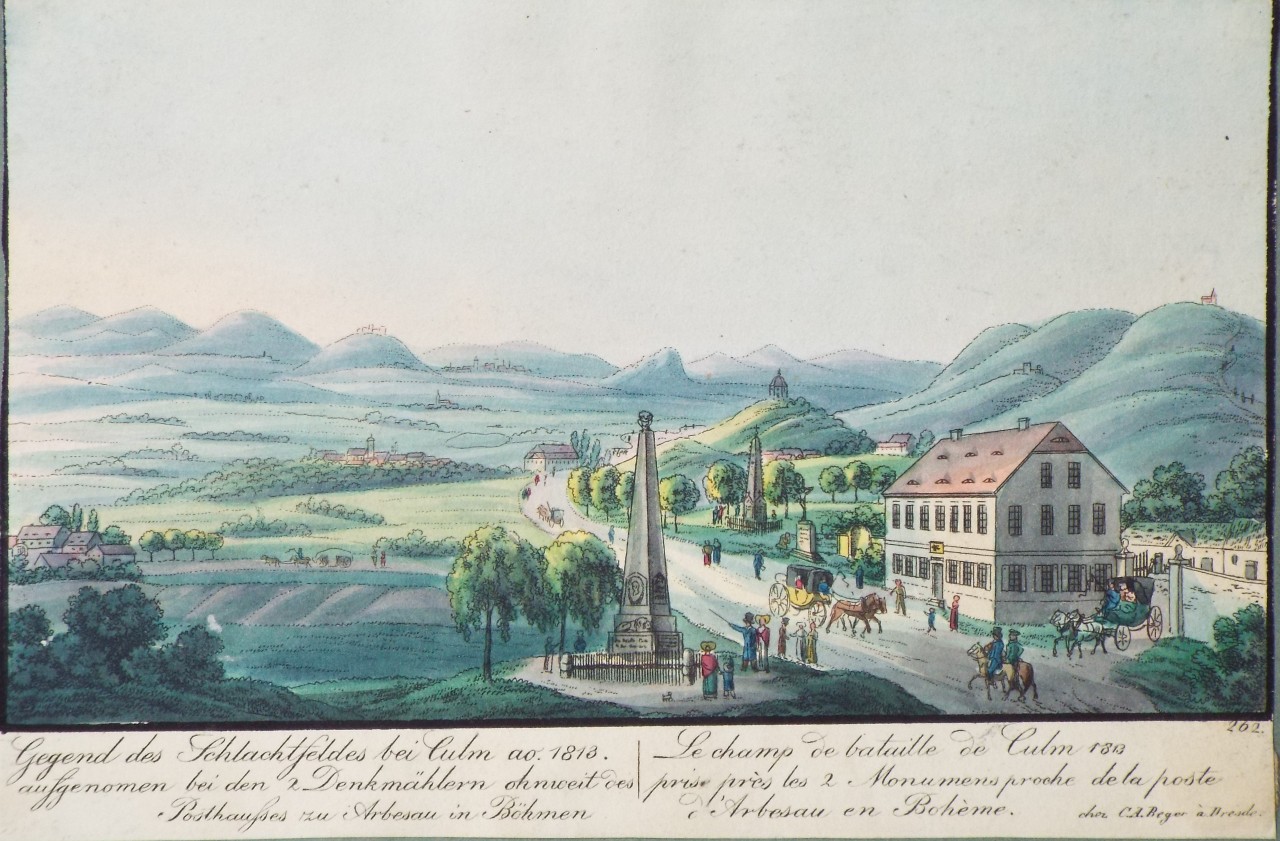 262.
Gegend des Schlachtfeldes bei Culm ao. 1813.
aufgenomen bei den 2 Denkmählern ohnweit des
Posthauses zu Arbesau in Böhmen
Le champ de bataille de Culm 1813
prise près les 2 Monumens proche de la poste
d'Arbesau en Bohème.
chez C.A. Beger à Dresde.